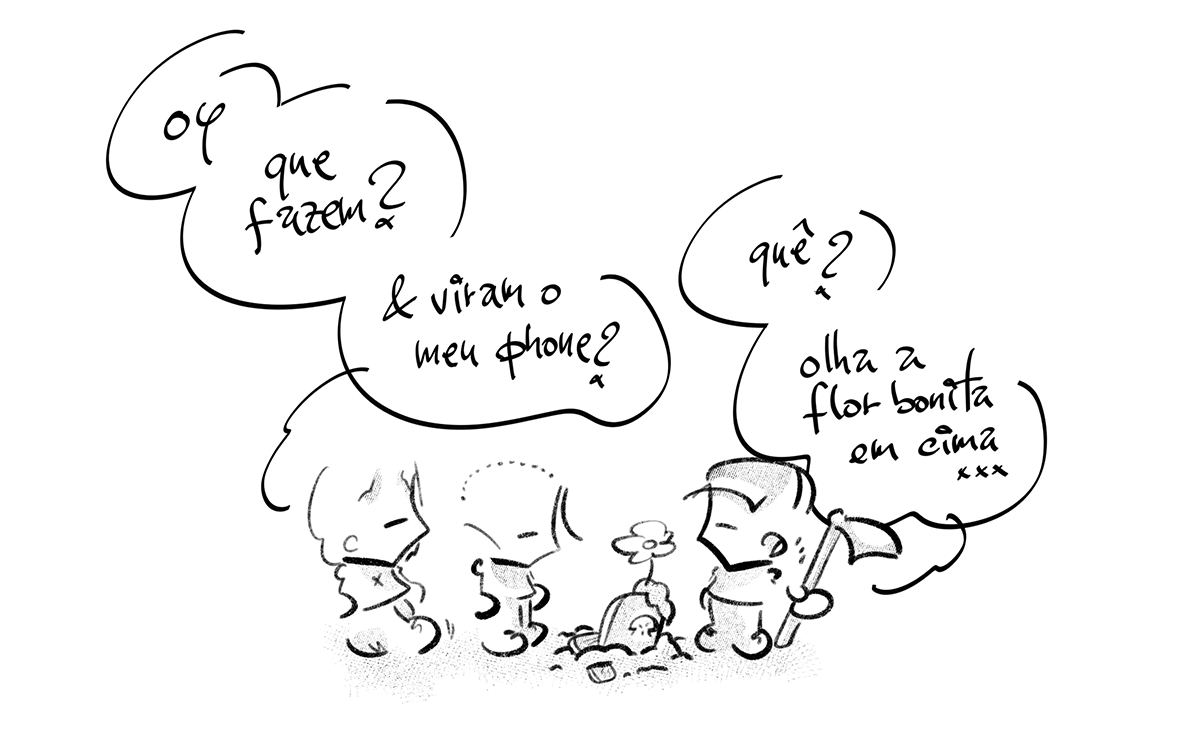 oy
que
fazem?
& viram o
meu phone?
quê?
olha a
flor bonita
em cima
xxx